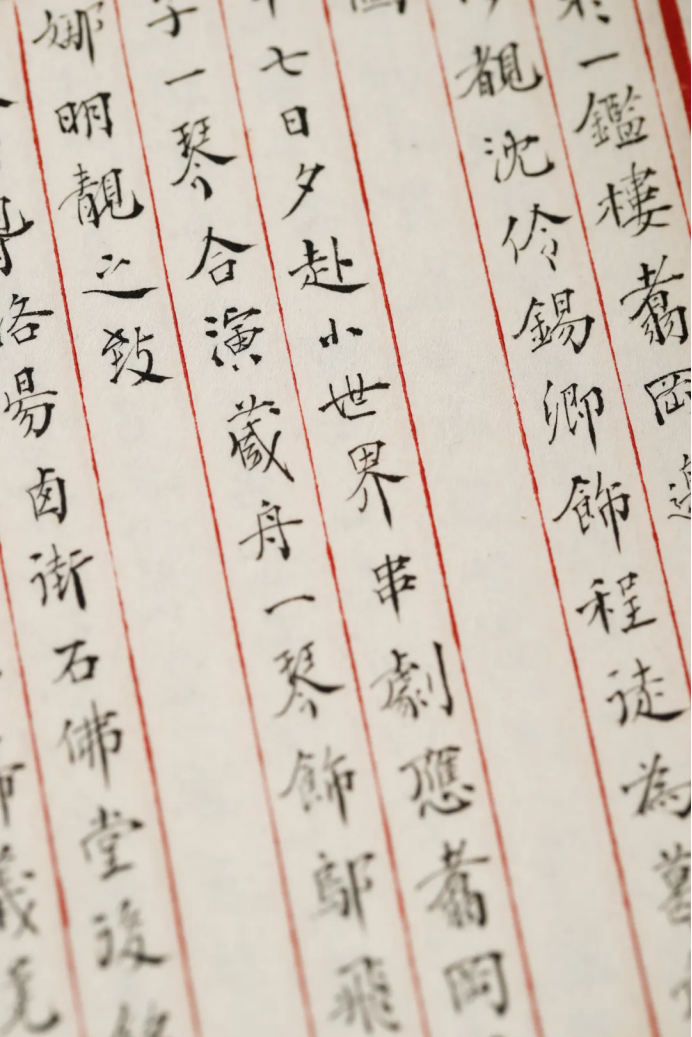 一鑑樓翥岡
觀沈伶錫卿飾程徒為
十七日夕赴小世界串劇應翥岡
子一琴合演蔵舟一琴飾鄔飛
娜明靚之致
洛易卤街石佛堂後